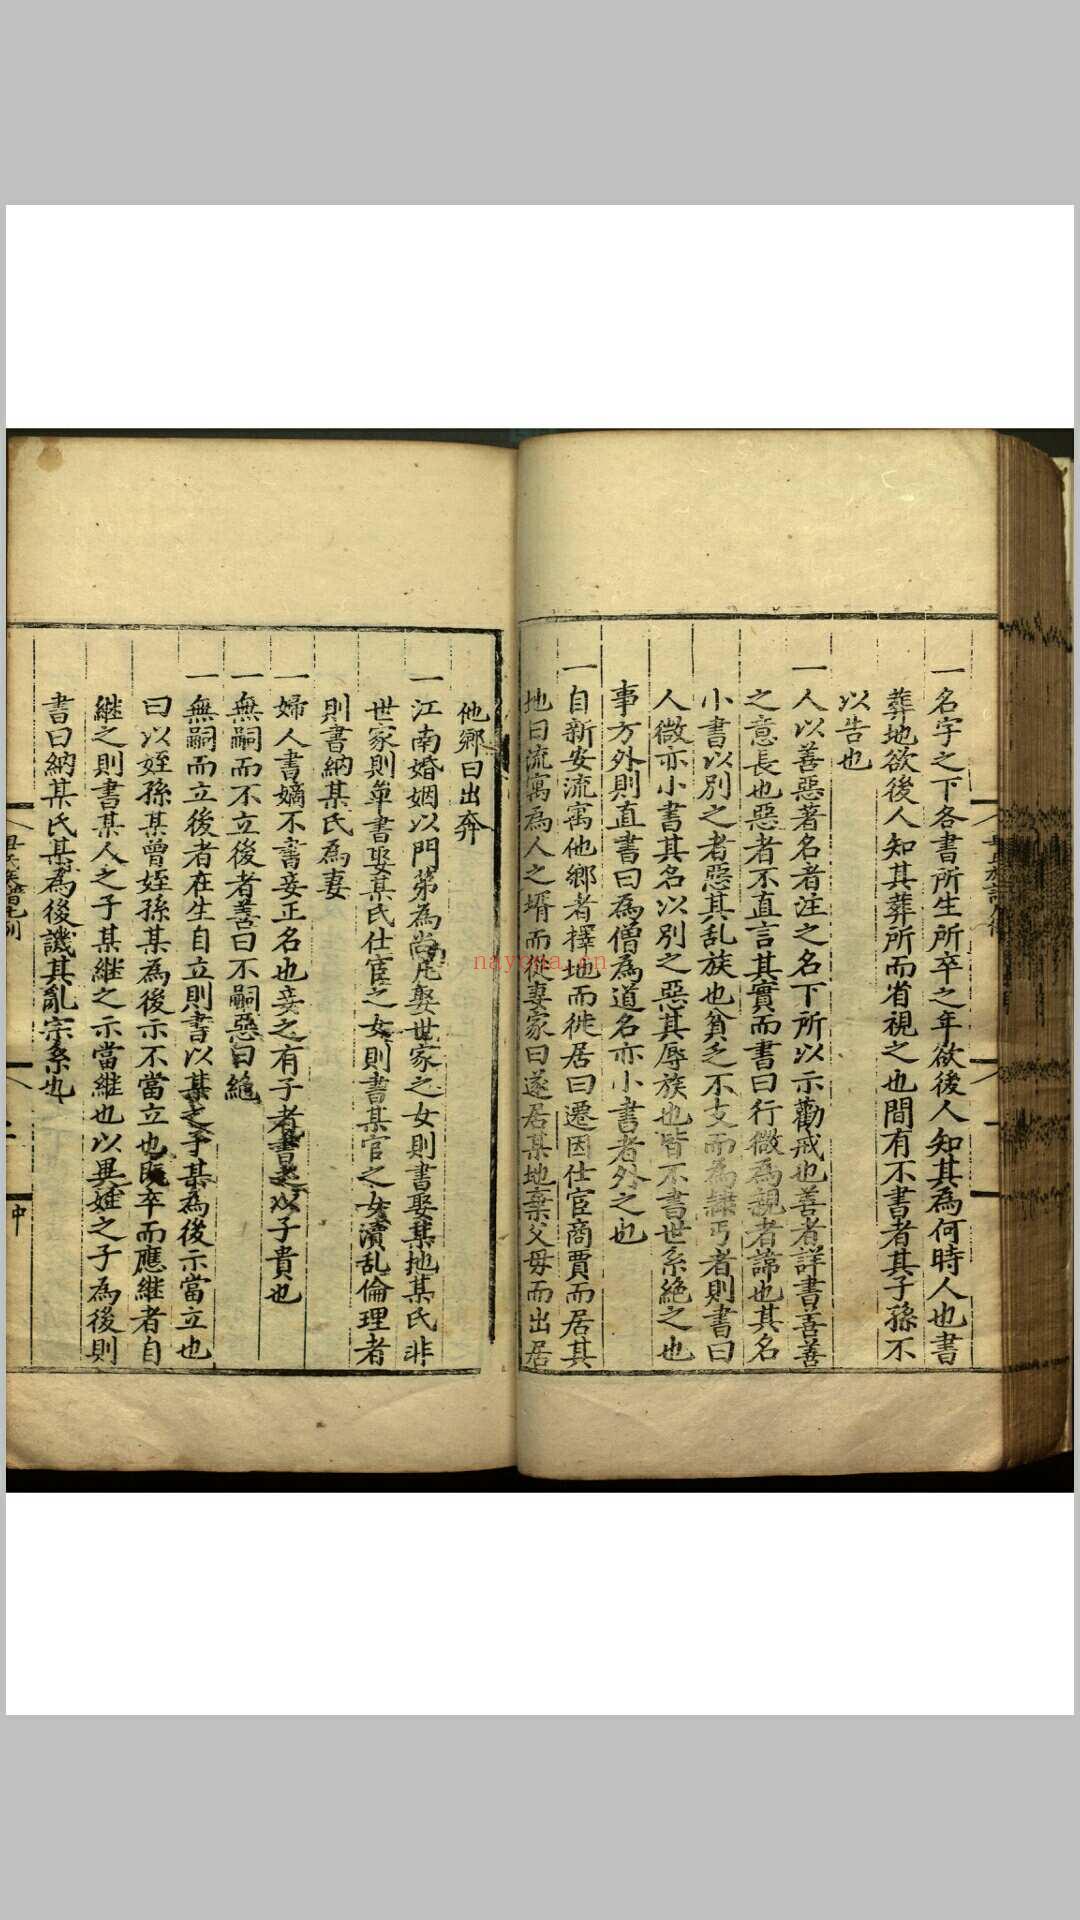 一名字之下各書所生所卒之年欲後人知其為何時人也書
葬地欲後人知其葬所而省視之也間有不書者其子孫不
以告也
一人以善惡著名者注之名下所以示勸戒也善者詳書善善
之意長也惡者不直言其實而書曰行微為親者諱也其名
小書以別之者惡其乱族也貧乏不支而為隸丐者則書曰
人微亦小書其名以別之惡其辱族也皆不書世系絶之也
事方外則直書曰為僧為道名亦小書者外之也
一自新安流寓他鄉者擇地而徙居曰遷因仕宦商賈而居其
地曰流寓為人之壻而從妻家曰遂居某地棄父母而出居
他鄉曰出奔
一江南婚姻以門第為尚凡娶世家之女則書娶某地某氏非
世家則单書娶某氏仕宦之女則書某官之女瀆乱倫理者
則書納某氏為妻
一婦人書嫡不書妾正名也妾之有子者書之以子貴也
一無嗣而不立後者善曰不嗣惡曰絶
一無嗣而立後者在生自立則書以某之子某為後示當立也
曰以姪孫某曾姪孫某為後示不當立也既卒而應継者自
継之則書某人之子某継之示當継也以異姓之子為後則
書曰納某氏某為後譏其亂宗系也
nayona.cn